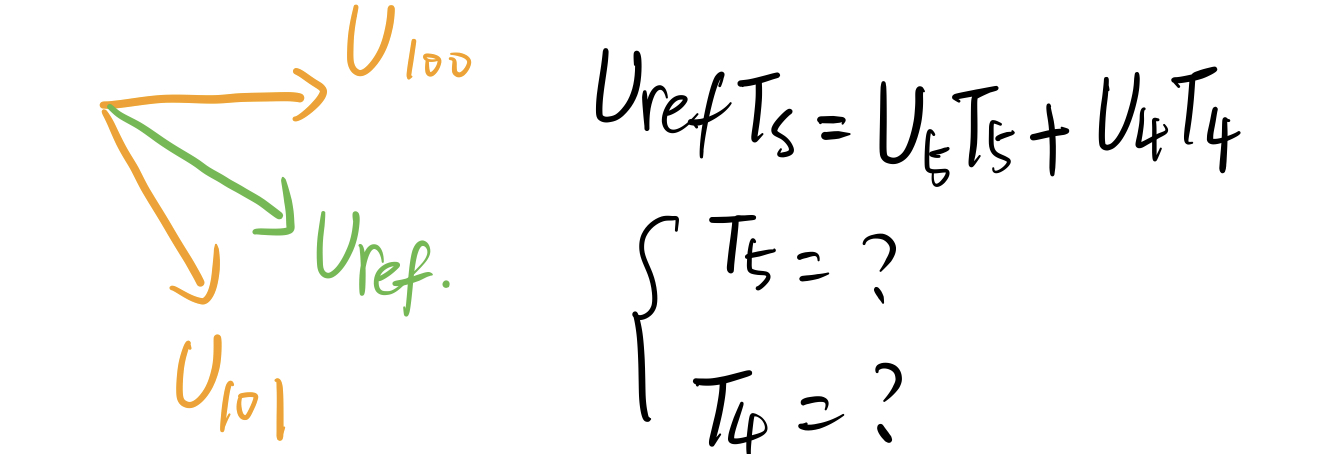 U100
Uref.
U101
UrefTs = U5T5 + U4T4
T5 = ?
T4 = ?